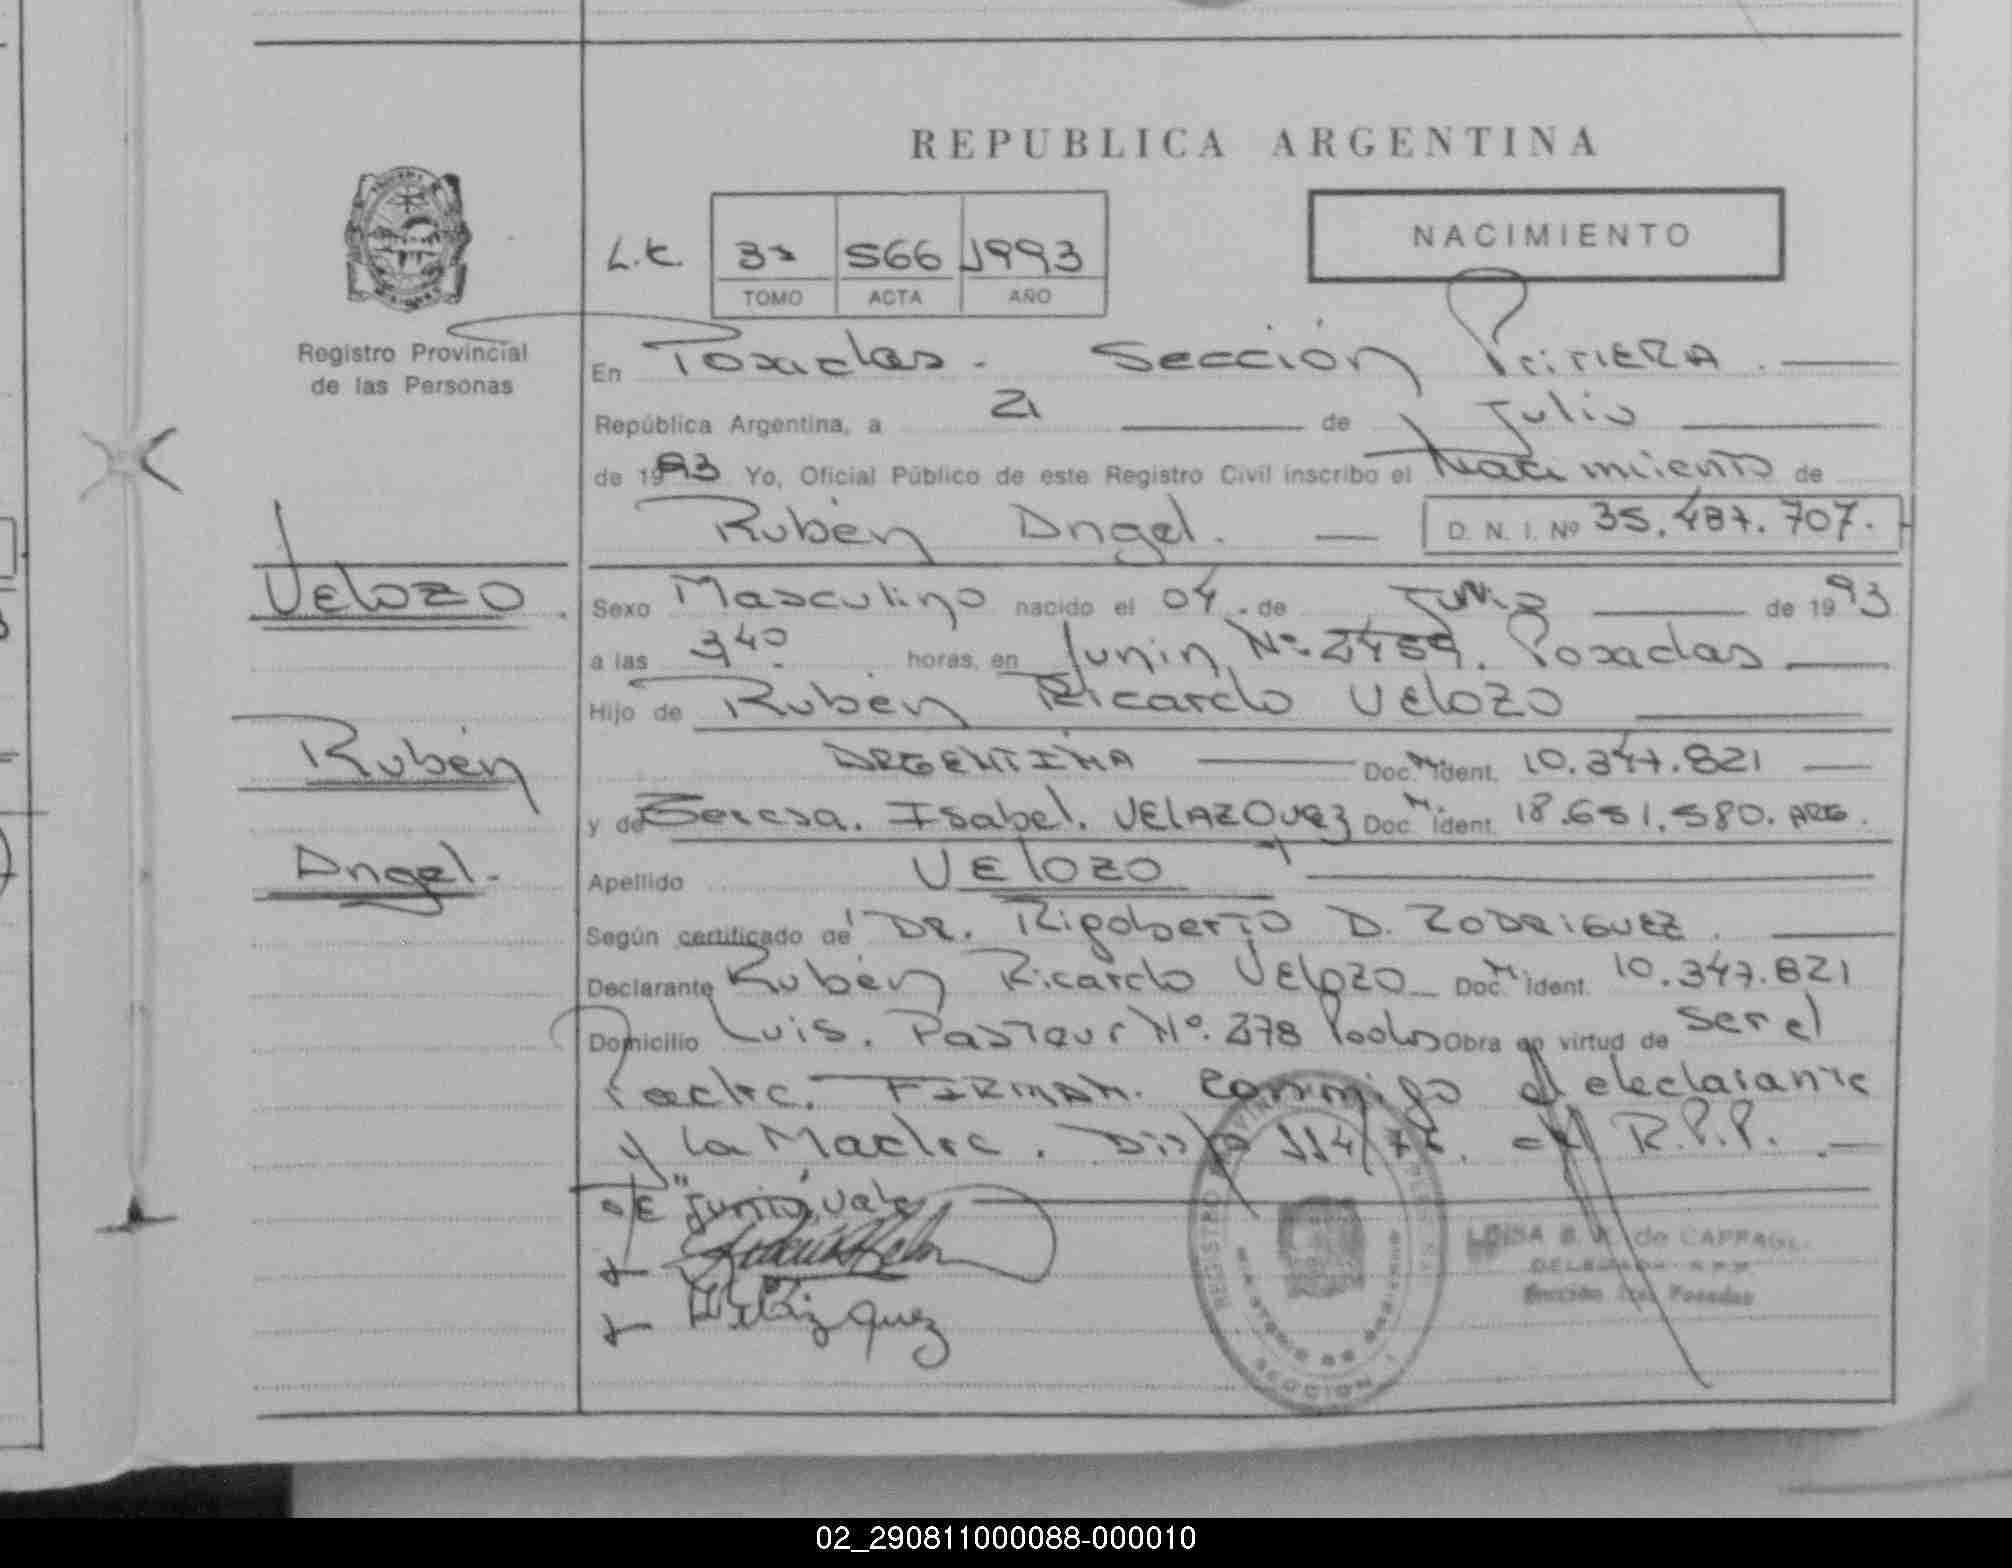 REPUBLICA ARGENTINA
NACIMIENTO
L.C. 3º 566 1993
TOMO ACTA AÑO
Registro Provincial
de las Personas
En Posadas - Sección Primera.
República Argentina, a 21 de Julio
de 1993 Yo, Oficial Público de este Registro Civil inscribo el Nacimiento de
Rubén Angel. D. N. I. Nº 35.487.707.
Velozo.
Sexo Masculino nacido el 04. de Junio de 1993
a las 3 40 horas, en Junin, Nº 2459. Posadas
Hijo de Rubén Ricardo Velozo
Rubén
ARGENTINA Doc. M. Ident. 10.347.821
y de Teresa. Isabel. VELAZQUEZ Doc. M. Ident. 18.651.580. ARG.
Angel.
Apellido VELOZO
Según certificado de DR. Rigoberto D. RODRIGUEZ.
Declarante Rubén Ricardo Velozo Doc. M. Ident. 10.347.821
Domicilio Luis. Pasteur Nº. 278 Pdas Obra en virtud de ser el
Padre. FIRMAN. Conmigo el declarante
y la Madre. Disp 114/76. del R.P.P.
S/E "Junio, Vale
Velázquez
REGISTRO PROVINCIAL
MINISTERIO DE GOBIERNO
SECCION 1
LUISA B. de CAPPAGL
DELEGADA R.P.P.
Sección 1ra. Posadas
02_290811000088-000010